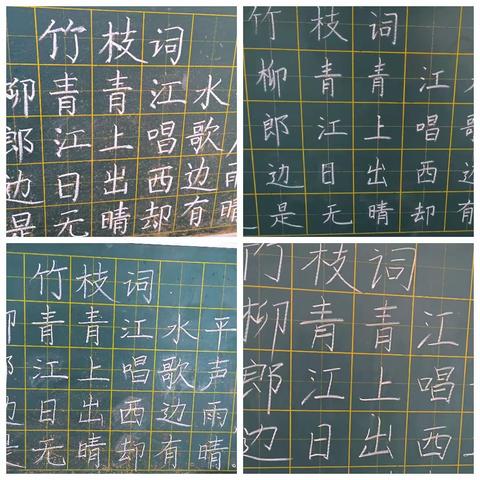 竹枝词
柳青青江水
郎江上唱歌
边日出西边雨
是无晴却有晴
竹枝词
柳青青江
郎江上唱歌
边日出西边
是无晴却有
竹枝词
青青江水平
江上唱歌声
边日出西边雨
是无晴却有晴。
竹枝词
柳青青江
郎江上唱
边日出西